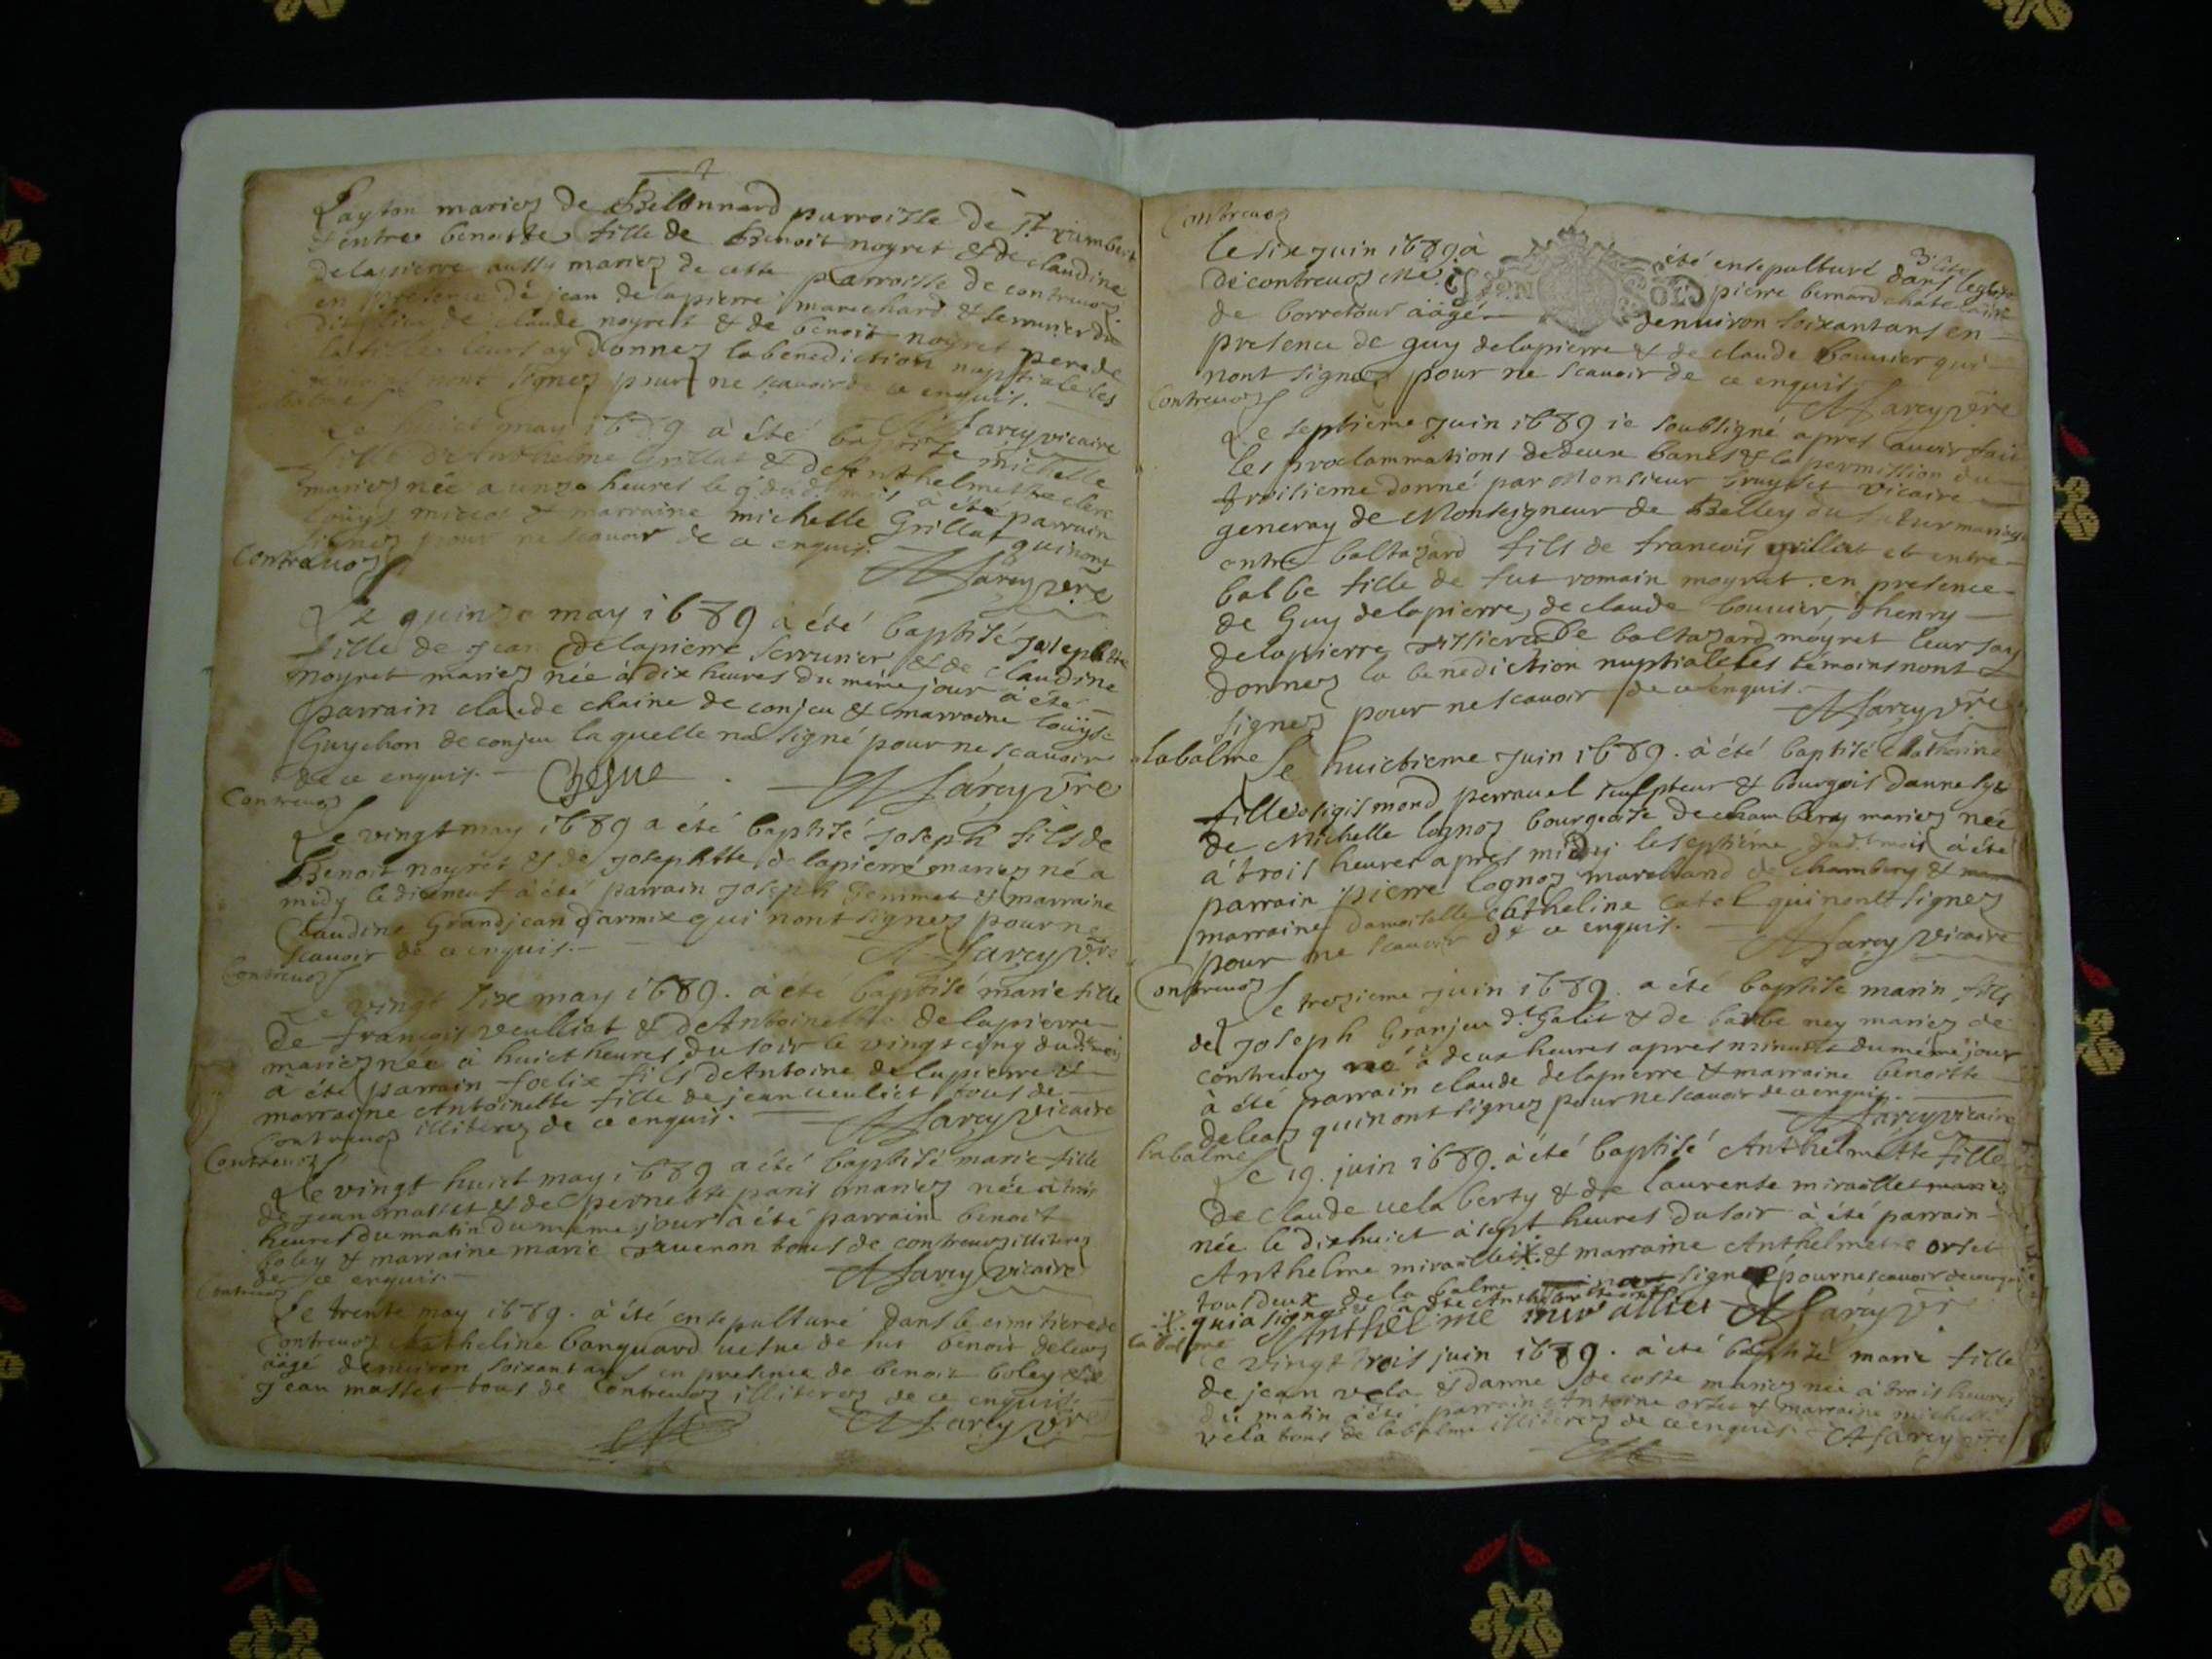 2
Layton mariez de Bellonnard parroisse de St rambert
& entre benoiste fille de Benoit noyret & de claudine
delapierre aussy mariez de cette parroisse de contrevoz
en presence de jean delapierre marechard & serrurier du
dit lieu de claude noyret & de benoit noyret pere de
la fille leurs ay donnez la benediction nuptiale les
nont signez pour ne scavoir de ce enquis.
A Sarcy vicaire
may 1689 à été baptisé michelle
fille d'Anthelme Grillat & d'Anthelmette clerc
mariez née a unze heures le 7 dud. mois à été parrain
Loüys & marraine michelle Grillat qui nont
signez pour ne scavoir de ce enquis.
A Sarcy vre
Contrevoz
Le quinze may 1689 à été baptisé Josephte
fille de Jean delapierre serrurier & de claudine
noyret mariez née à dix heures du même jour à été
parrain claude chaine de conjeu & marraine loüyse
Guychon de conjeu la quelle na signé pour ne scavoir
de ce enquis.
A Sarcy vre
Contrevoz
Le vingt may 1689 a été baptisé Joseph fils de
Benoit noyret & de Josephtte delapierre mariez né a
midy le dixneuf à été parrain Joseph Jemmet & marraine
Claudine Grandjean d'armix qui nont signez pour ne
scavoir de ce enquis.
A Sarcy vre
Contrevoz
Le vingt six may 1689. à été baptisé marie fille
De francois veulliet & d'Antoinette delapierre
mariez née à huict heures du soir le vingt cinq dudt mois
à été parrain foelix fils d'Antoine delapierre &
marraine Antoinette fille de jean veuliet tous de
Contrevoz illiterez de ce enquis.
A Sarcy vicaire
Contrevoz
Le vingt huict may 1689 a été baptisé marie fille
de jean masset & de pernette paris mariez née à trois
heures du matin du meme jour à été parrain benoit
boley & marraine marie raveron tous de contrevoz illiterez
de ce enquis.
A Sarcy vicaire
Contrevoz
Le trente may 1689. à été ensepulturé dans le cimitiere de
Contrevoz Catheline banquard vefve de fut benoit deleaz
äagé denviron soixant ans en presence de benoit boley & de
Jean masset tous de Contrevoz illiterez de ce enquis.
A Sarcy vre
Contrevoz
le six juin 1689 à été ensepulturé dans leglise
De contrevoz pierre bernard châtelain
de borretour äagé denviron soixantans en
presence de guy delapierre & de claude bouvier qui
nont signez pour ne scavoir de ce enquis.
A Sarcy vre
Contrevoz
Le septieme juin 1689 ie soubsigné apres avoir fait
les proclammations de deux bancs & la permission du
troisieme donné par Monsieur bruyset vicaire
generay de Monseigneur de Belley du futur mariage
entre baltazard fils de francois grillat et entre
balbe fille de fut romain moyret en presence
de Guy delapierre, de claude bouvier, d'henry
delapierre de baltazard moyret leurs ay
donnez la benediction nuptiale les témoins nont
signez pour ne scavoir de ce enquis.
A Sarcy vre
Labalme
Le huictieme Juin 1689. à été baptisé Catherine
fille sigismond perravel sculpteur & bourgois dannesy &
de Michelle lognoz bourgeoise de chambery mariez née
à trois heures apres midy le septiéme dudt mois à été
parrain pierre lognoz marchand de chambery &
marraine damoiselle Catheline Catel qui nont signez
pour ne scavoir de ce enquis.
A Sarcy vicaire
Contrevoz
Le trezieme juin 1689. a été baptisé marin fils
de Joseph Granjeu dt Galit & de barbe ney mariez de
contrevoz né à deux heures apres minuit du même jour
à été parrain claude delapierre & marraine benoitte
deleaz qui nont signez pour ne scavoir de ce enquis.
A Sarcy vicaire
Labalme
Le 19. juin 1689. à été baptisé Anthelmette fille
De claude vela berty & de laurente miraillet mariez
née le dixhuict à sept heures du soir à été parrain
Anthelme miraillet & marraine Anthelmette orset
tous deux de la balme signez pour ne scavoir de ce enquis
qui a signé
Anthelme mirallier A Sarcy vre
la balme
Le vingt trois juin 1689. à été baptisé marie fille
de jean vela & danne de coste mariez née à trois heures
du matin à été parrain Antoine orset & marraine michelle
vela tous de labalme illiterez de ce enquis. A Sarcy vre